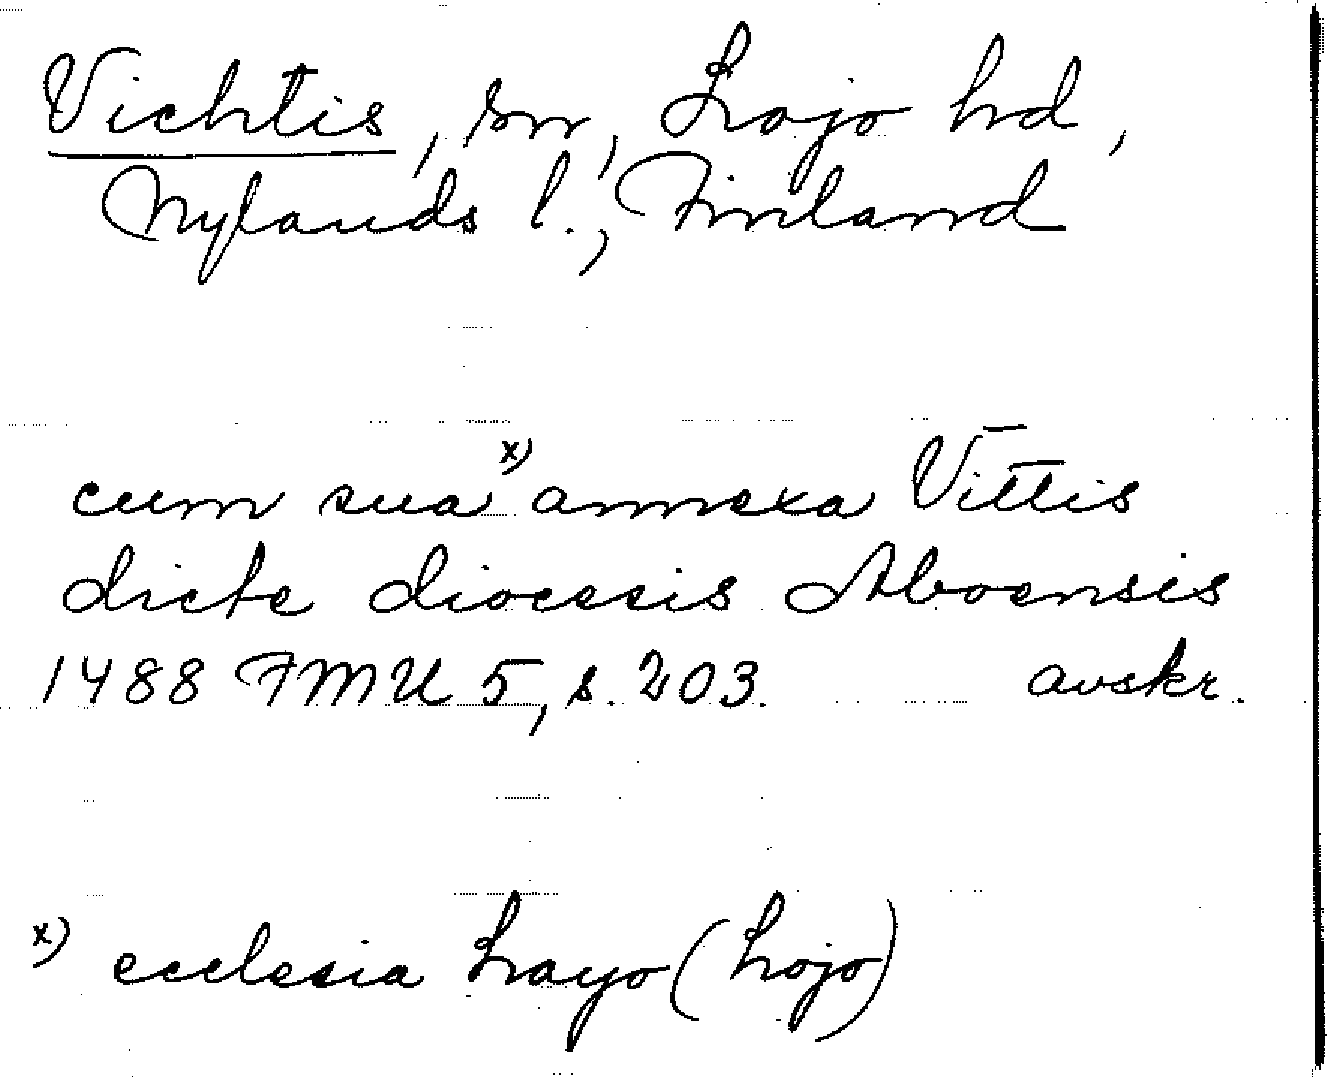 Vichtis, sn, Lojo hd,
Nylands l., Finland
cum sua x) annexa Vittis
dicte diocesis Aboensis
1488 FMU 5, s. 203. avskr.
x) ecclesia Layo (Lojo)